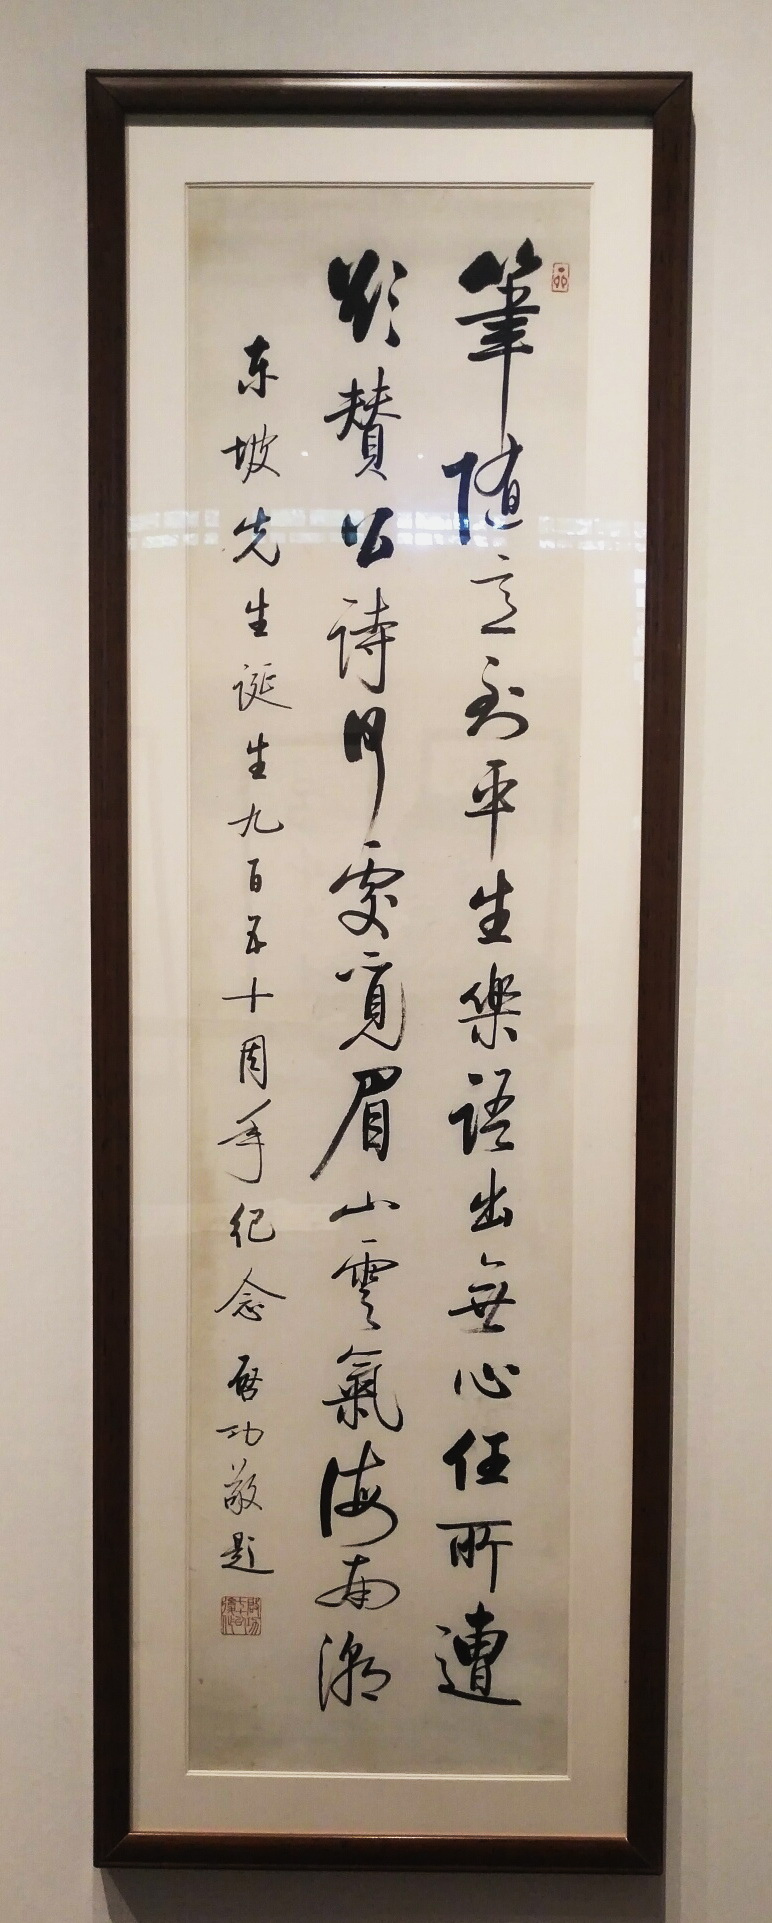 筆随意到平生樂語出無心任所遭
欲贊公詩何處覓眉山雲氣海南潮
东坡先生誕生九百五十周年纪念 啓功敬题